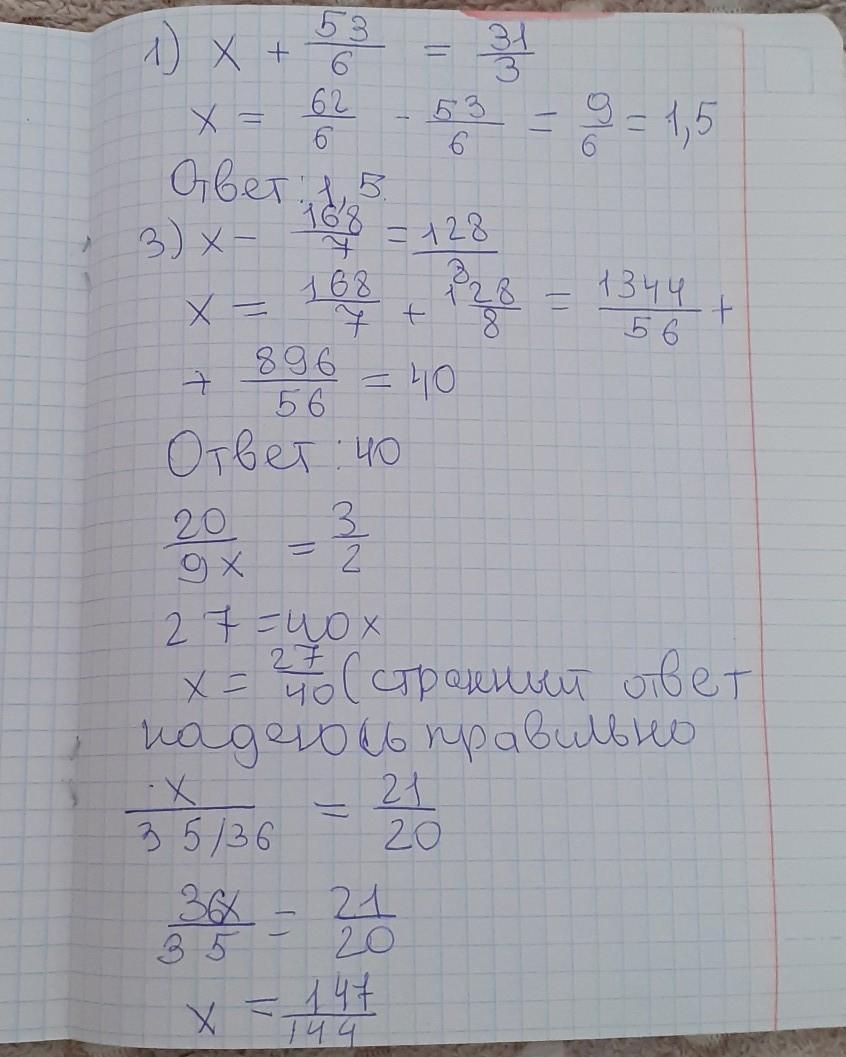 1) x + 53/6 = 31/3
x = 62/6 - 53/6 = 9/6 = 1,5
Ответ: 1,5.
3) x - 168/7 = 128/8
x = 168/7 + 128/8 = 1344/56 +
+ 896/56 = 40
Ответ: 40
20/9x = 3/2
27 = 40x
x = 27/40 (странный ответ
надеюсь правильно
x/35/36 = 21/20
36x/35 = 21/20
x = 147/144